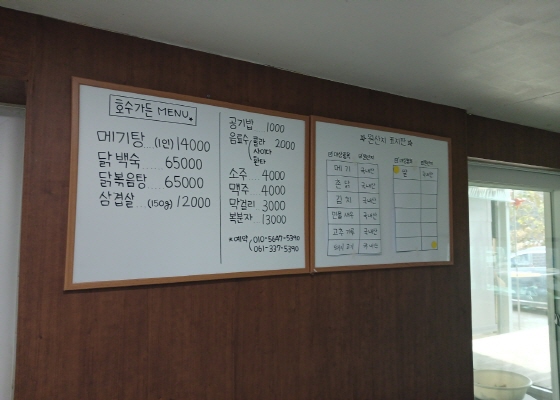 호수가든 MENU.
메기탕 (1인) 14000
닭백숙 65000
닭볶음탕 65000
삼겹살 (150g) 12000
공기밥 1000
음료수 콜라 2000
사이다
환타
소주 4000
맥주 4000
막걸리 3000
복분자 13000
*예약 010-5647-5390
061-337-5390
원산지 표시판
메기 국내산
토닭 국내산
김치 국내산
민물새우 국내산
고추가루 국내산
국내산
쌀 국내산